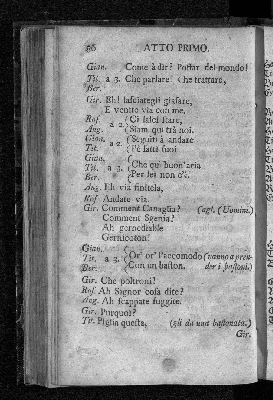 56 ATTO PRIMO.
Gian. Come à dir? Poffar del mondo!
Tit. a 3. Che parlare! che trattare,
Ber.
Gir. Eh! lasciategli gisfare,
E venite via con me.
Rof. a 2. Ci lasci stare,
Aug. Siam qui trà noi.
Gian. a 2. Seguiti à andare
Tit. Pe fatti suoi
Gian.
Tit. a 3. Che qui buon'aria
Ber. Per lei non c'è.
Aug. Eh via finitela,
Rof Andate via.
Gir. Comment Canaglia? (agl. Uomini.)
Comment Sgenia?
Ah gernediable
Gernicoton?
Gian.
Tit. a 3. Or' or' l'accomodo (vanno a pren-
Ber. Con un baston. der i bastoni.)
Gir. Che poltroni?
Rof. Ah Signor cosa dite?
Aug. Ah scappate fuggite.
Gir. Purquoi?
Tit. Piglia questa, (gli dà una bastonata.)
Gir.